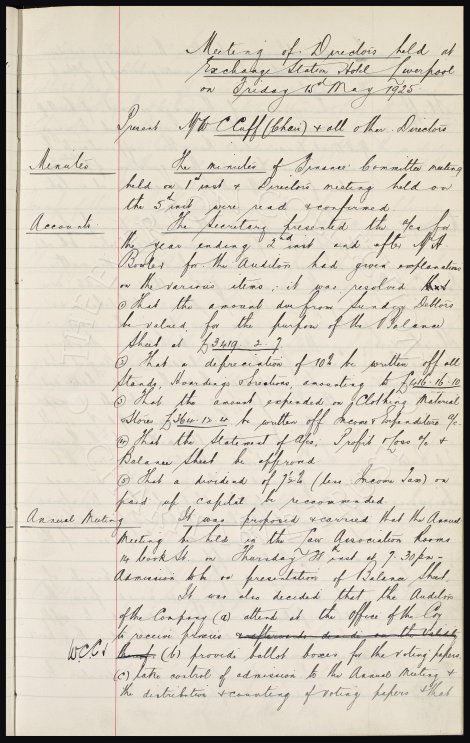 Meeting of Directors held at
Exchange Station Hotel Liverpool
on Friday 15th May 1925
Present Mr W C Cuff (Chair) & all other Directors
Minutes
The minutes of Finance Committee meeting
held on 1st inst & Directors meeting held on
the 5th inst were read & confirmed.
Accounts
The Secretary presented the a/cs for
the year ending 2nd inst and after Mr A
Bowler for the Auditors had given explanations
on the various items; it was resolved that
(1) That the amount due from Sundry Debtors
be valued for the purpose of the Balance
Sheet at £3419. 2. 7
(2) That a depreciation of 10% be written off all
Stands, Hoardings & Erections, amounting to £416.16.10
(3) That the amount expended on Clothing Material
Stores £364.12.4 be written off Income & Expenditure a/c.
(4) That the Statement of a/cs, Profit & Loss a/c &
Balance Sheet be approved
(5) That a dividend of 7½% (less Income Tax) on
paid up capital be recommended
Annual Meeting
It was proposed & carried that the Annual
Meeting be held in the Law Association Rooms
14 Cook St. on Thursday inst at 7.30pm -
Admission to be on presentation of Balance Sheet.
It was also decided that the Auditors
of the Company (a) attend at the Office of the Coy
to receive proxies & afterwards decide on the validity
WCC
thereof (b) provide ballot boxes for the voting papers
(c) take control of admission to the Annual Meeting &
the distribution & counting of voting papers & that